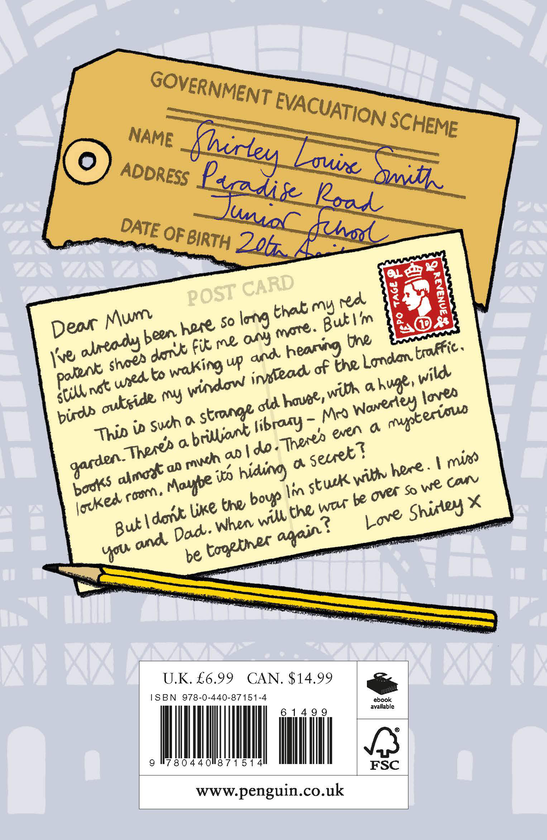 GOVERNMENT EVACUATION SCHEME
NAME Shirley Louise Smith
ADDRESS Paradise Road
Junior School
DATE OF BIRTH 20th
POST CARD
POSTAGE REVENUE
1D
Dear Mum
I've already been here so long that my red
patent shoes don't fit me any more. But I'm
still not used to waking up and hearing the
birds outside my window instead of the London traffic.
This is such a strange old house, with a huge, wild
garden. There's a brilliant library – Mrs Waverley loves
books almost as much as I do. There's even a mysterious
locked room. Maybe it's hiding a secret?
But I don't like the boys I'm stuck with here. I miss
you and Dad. When will the war be over so we can
be together again?
Love Shirley X
U.K. £6.99 CAN. $14.99
ISBN 978-0-440-87151-4
61499
9 780440 871514
ebook
available
FSC
www.penguin.co.uk